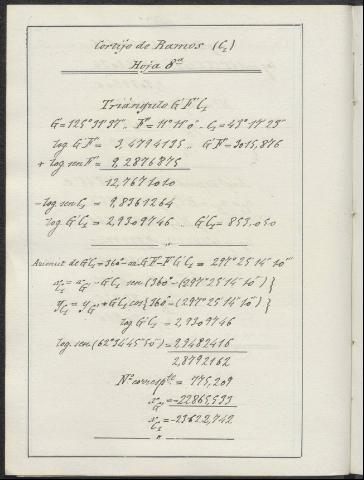 Cortijo de Ramos (C₁)
Hoja 8ª
Triángulo G'F''C₁
G=125°31'37'' .. F''=11°11'0'' .. C₁=43°17'23''
log. G'F''= 3,4794135 .. G'F''=3015,876
+ log. sen F''= 9,2876875
12,7671010
- log. sen C₁ = 9,8361264
log. G'C₁= 2,9309746 .. G'C₁= 853,050
Azimut de G'C₁=360°-az.G'F''-F''G'C₁= 297°25'14''10'''
x_C₁= x_G'-G'C₁ sen{360°-(297°25'14''10''')}
y_C₁= y_G'+G'C₁ cos{360°-(297°25'14''10''')}
log G'C₁= 2,9309746
log. sen(62°34'45''50''')=9,9482416
2,8792162
Nº corresp.te= 775,209
x_G'=-22865,533
x_C₁=-23622,742